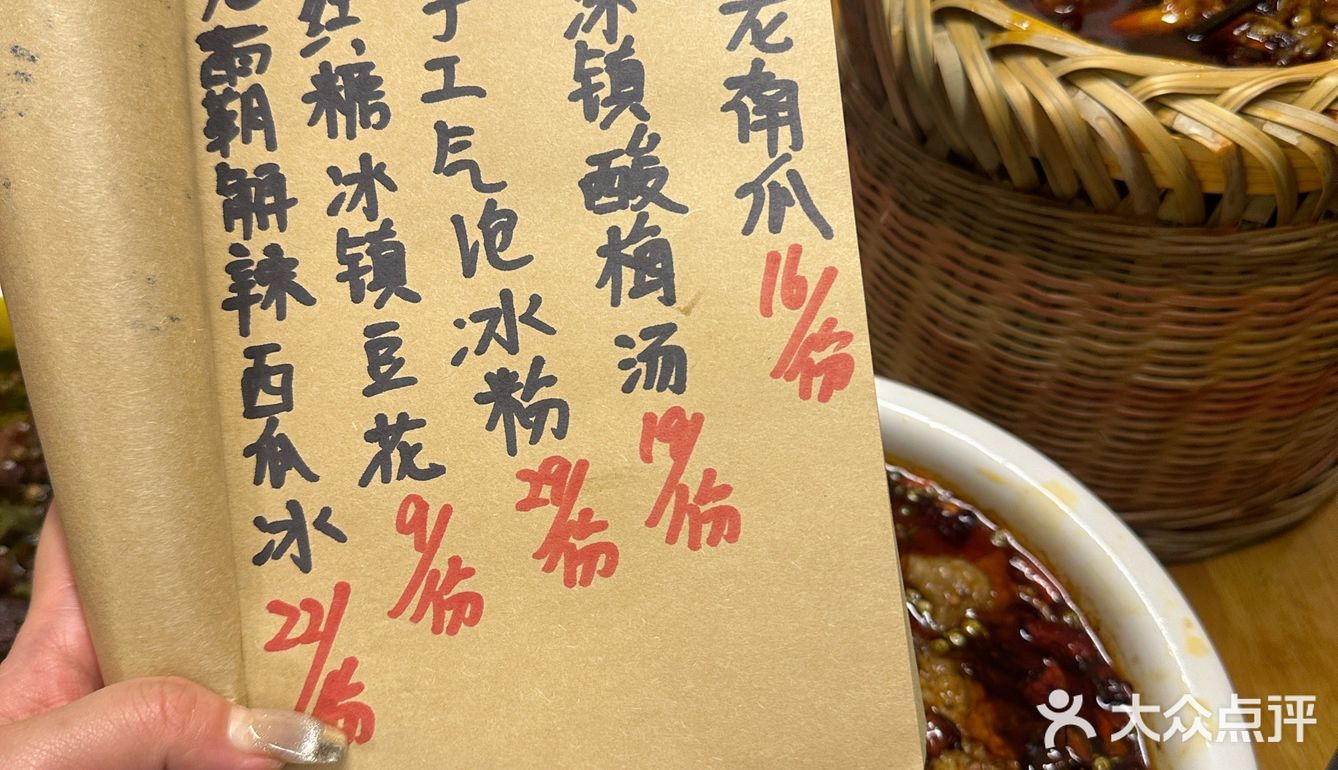 老南瓜 16/份
冰镇酸梅汤 19/份
手工气泡冰粉 29/份
红糖冰镇豆花 9/份
霸解辣西瓜冰 22/份
大众点评